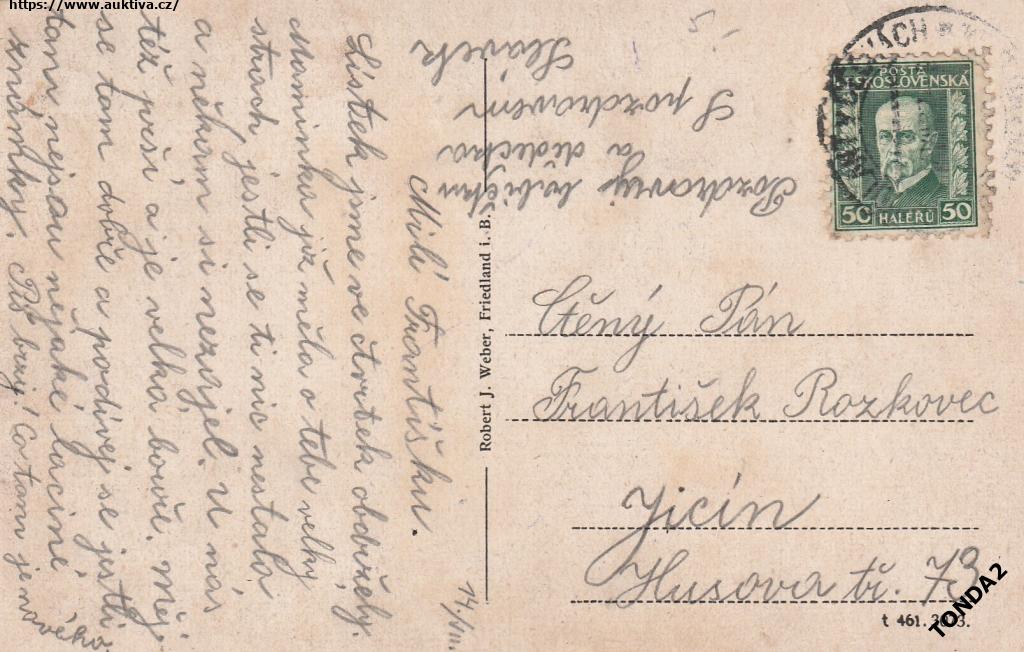 https://www.auktiva.cz/
14./VIII.
Milí Františku.
Lístek jsme ve čtvrtek obdrželi.
Maminka již měla o tebe velký
strach, jestli se ti nic nestalo
a někam si nezajel. U nás
též prší, a je velká bouře. Měj
se tam dobře a podívej se jestli
tam nejsou nějaké laciné
známky. Piš brzy! Co tam je nového.
Pozdravuj babičku
a dědečka
S pozdravem
Slávek
Robert J. Weber, Friedland i. B.
POŠTA
ČESKOSLOVENSKÁ
50 HALÉŘŮ 50
Ctěný Pán
František Rozkovec
Jicín
Husova tř. 73
t 461.
TONDA2